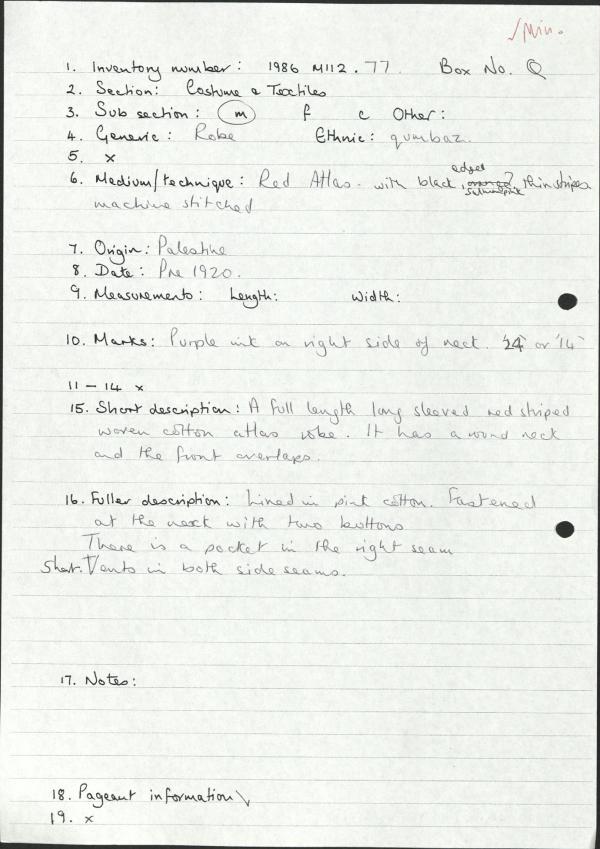 1. Inventory number: 1986 M112.77. Box No. Q
2. Section: Costume & Textiles
3. Sub section: m f c Other:
4. Generic: Robe Ethnic: qumbaz.
5. x
edged
6. Medium/technique: Red Atlas. with black, thin stripes
machine stitched
7. Origin: Palestine
8. Date: Pre 1920.
9. Measurements: Length: Width:
10. Marks: Purple ink on right side of neck. '24' or '14'
11 - 14 x
15. Short description: A full length long sleeved red striped
woven cotton atlas robe. It has a round neck
and the front overlaps.
16. Fuller description: Lined in pink cotton. Fastened
at the neck with two buttons
There is a pocket in the right seam
Short. Vents in both side seams.
17. Notes:
18. Pageant information \
19. x